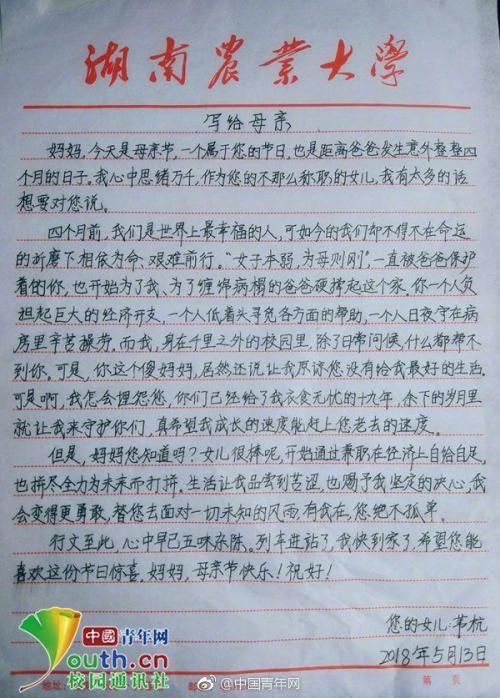 湖南農業大學
写给母亲
妈妈,今天是母亲节,一个属于您的节日,也是距离爸爸发生意外整整四
个月的日子。我心中思绪万千,作为您的不那么称职的女儿,我有太多的话
想要对您说。
四个月前,我们是世界上最幸福的人,可如今的我们却不得不在命运
的折磨下相依为命、艰难前行。“女子本弱,为母则刚”,一直被爸爸保护
着的你,也开始为了我、为了缠绵病榻的爸爸硬撑起这个家。你一个人负
担起巨大的经济开支,一个人低着头寻觅各方面的帮助,一个人日夜守在病
房里辛苦操劳。而我,身在千里之外的校园里,除了日常问候,什么都帮不
到你。可是,你这个傻妈妈,居然还说让我原谅您没有给我最好的生活。
可是啊,我怎会埋怨您,你们已经给了我衣食无忧的十九年,余下的岁月里
就让我来守护你们,真希望我成长的速度能赶上您老去的速度。
但是,妈妈您知道吗?女儿很棒呢,开始通过兼职在经济上自给自足,
也拼尽全力为未来而打拼。生活让我品尝到苦涩,也赐予我坚定的决心,我
会变得更勇敢,替您去面对一切未知的风雨,有我在,您绝不孤单。
行文至此,心中早已五味杂陈。列车进站了,我快到家了,希望您能
喜欢这份节日惊喜,妈妈,母亲节快乐!祝好!
您的女儿:芾杭
2018年5月13日
中國青年网
youth.cn
校园通讯社
地址:
第 页
@中国青年网